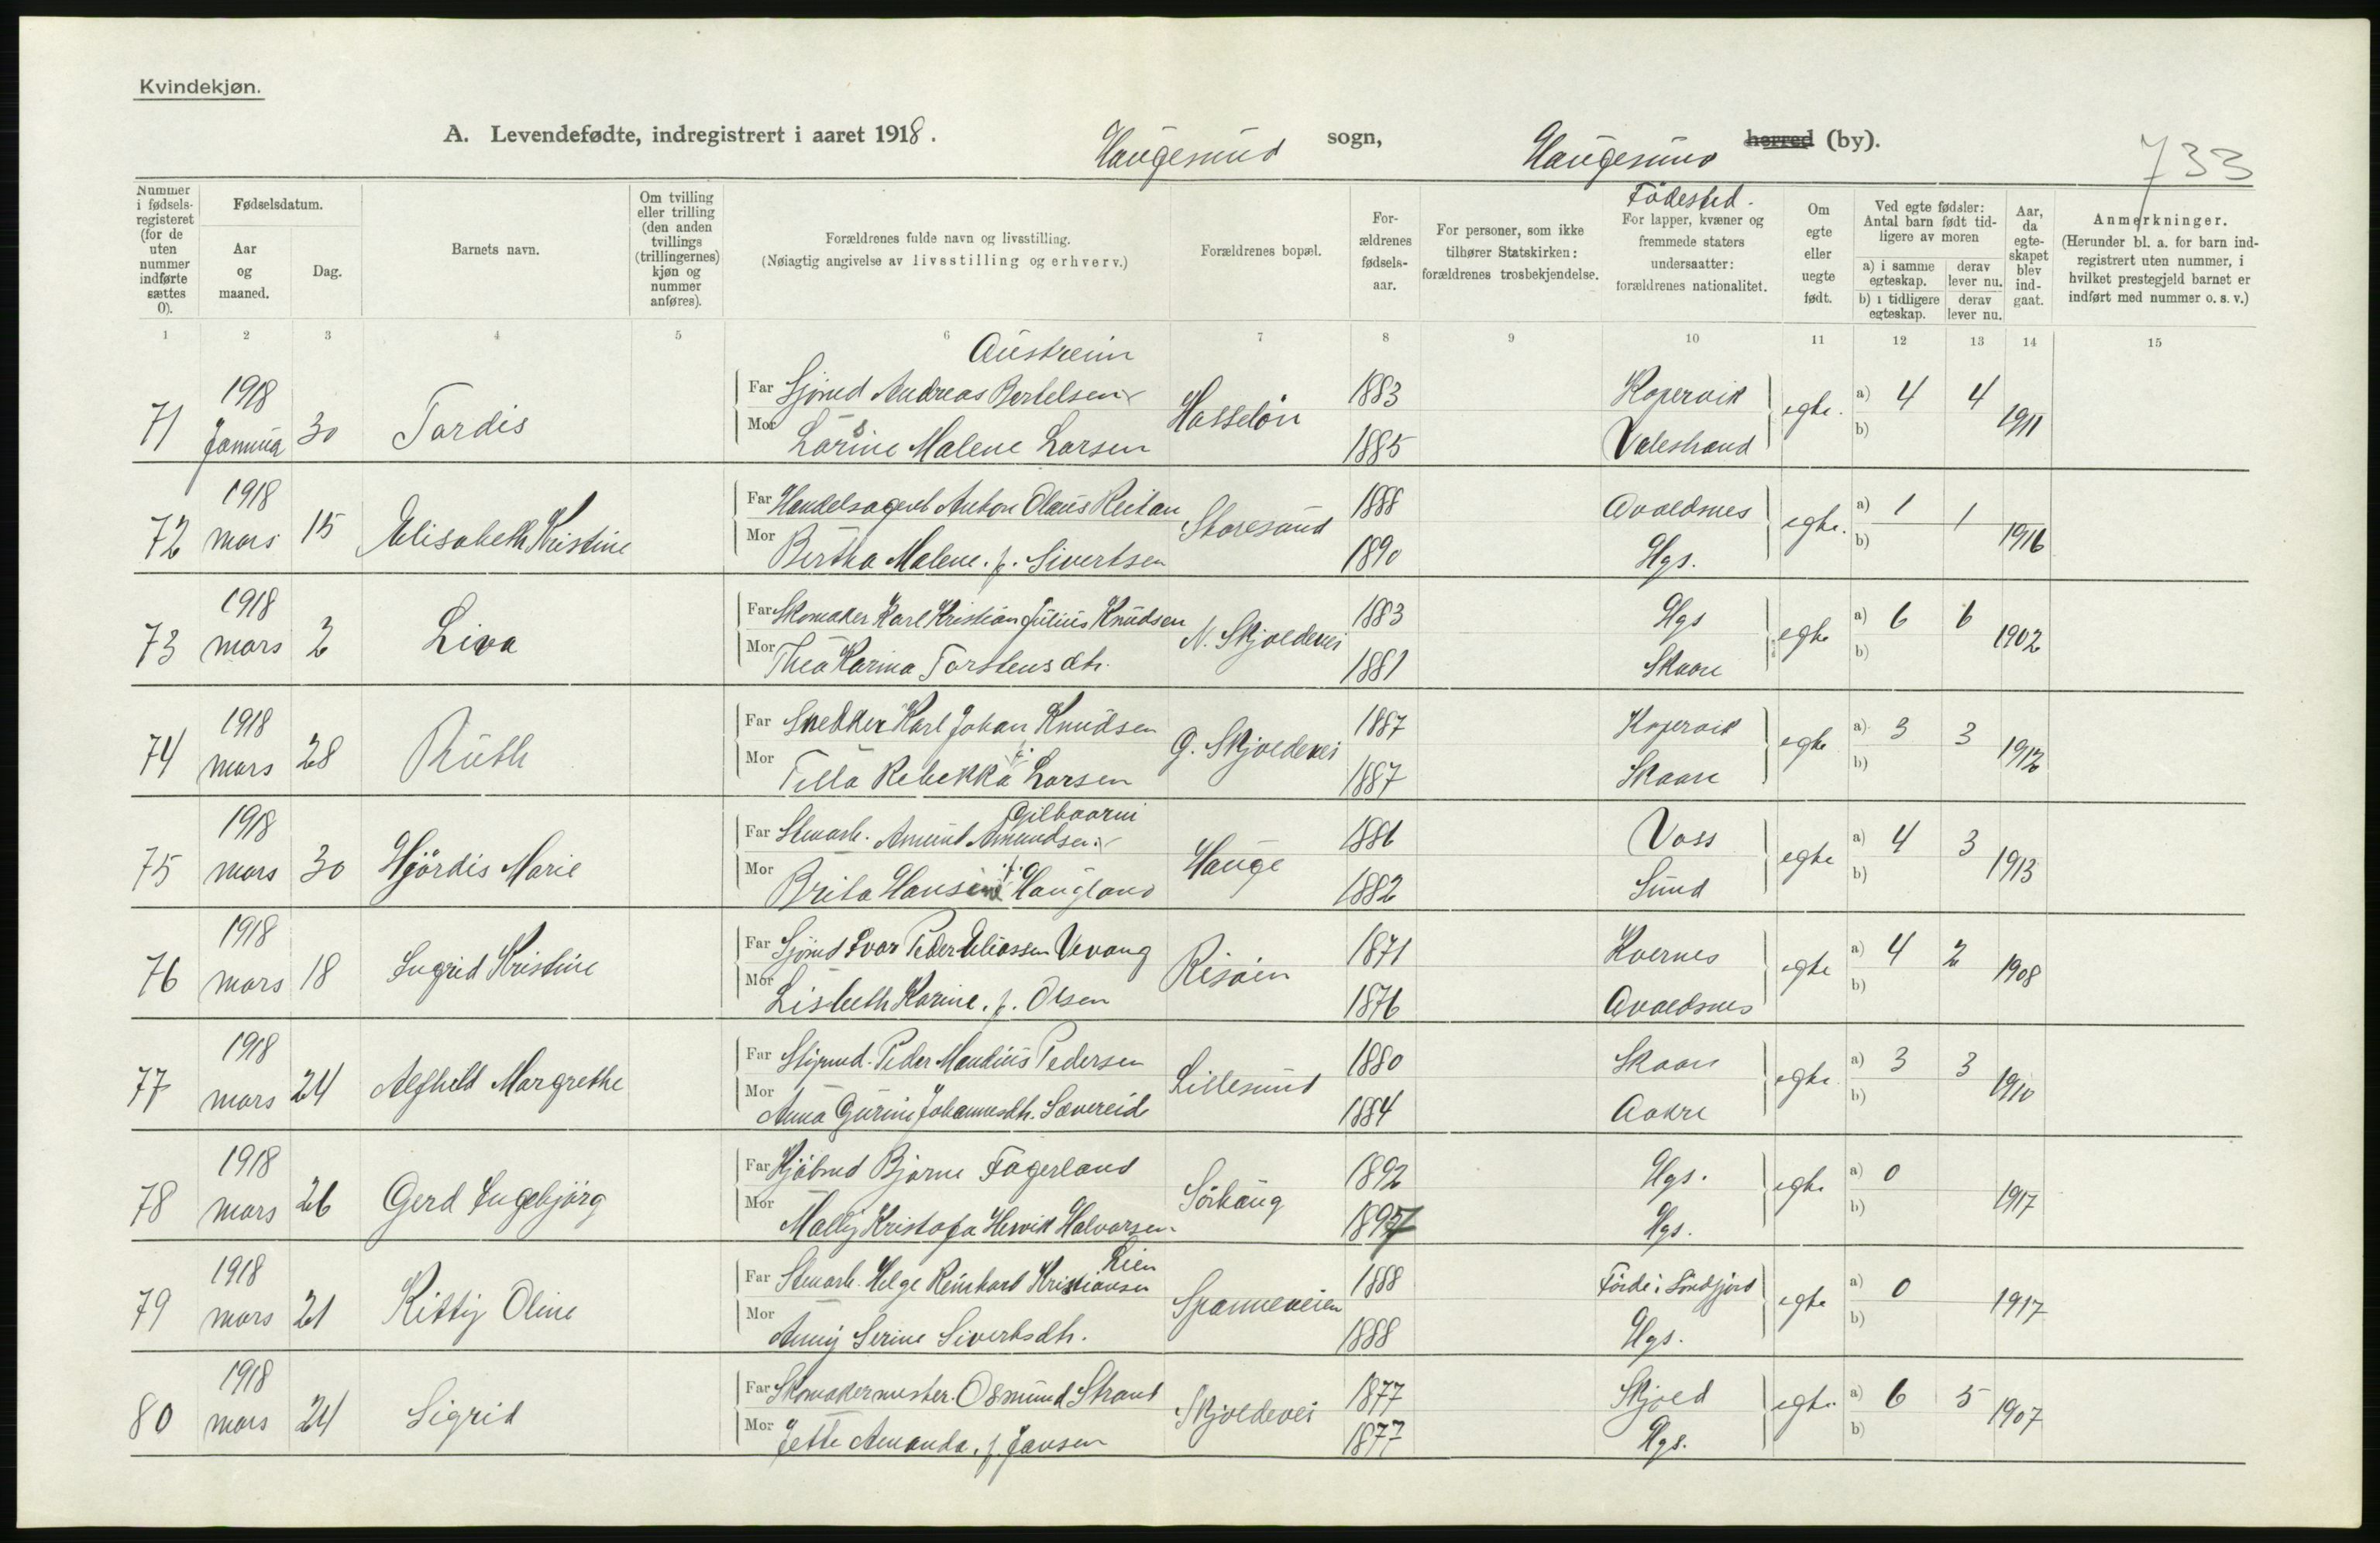 Kvindekjøn.
A. Levendefødte, indregistrert i aaret 1918.
Haugesund sogn,
Haugesund herred (by).
733
Nummer i fødselsregisteret (for de uten nummer indførte sættes 0).
Fødselsdatum.
Aar og maaned.
Dag.
Barnets navn.
Om tvilling eller trilling (den anden tvillings (trillingernes) kjøn og nummer anføres).
Forældrenes fulde navn og livsstilling.
(Nøiagtig angivelse av livsstilling og erhverv.)
Forældrenes bopæl.
Forældrenes fødselsaar.
For personer, som ikke tilhører Statskirken: forældrenes trosbekjendelse.
Födested.
For lapper, kvæner og fremmede staters undersaatter: forældrenes nationalitet.
Om egte eller uegte født.
Ved egte fødsler: Antal barn født tidligere av moren
a) i samme egteskap. derav lever nu.
b) i tidligere egteskap. derav lever nu.
Aar, da egteskapet blev indgaat.
Anmerkninger.
(Herunder bl. a. for barn indregistrert uten nummer, i hvilket prestegjeld barnet er indført med nummer o. s. v.)
1 2 3 4 5 6 7 8 9 10 11 12 13 14 15
Austreim
71 1918 Januar 30 Tordis
Far Sjømd Andreas Bertelsen Hasseløn 1883 Kopervik egte. a) 4 4 1911
Mor Larsine Malene Larsen 1885 Valestrand b)
72 1918 mars 15 Elisabeth Kristine
Far Handelsagent Anton Olaus Reitan Storesund 1888 Avaldsnes egte. a) 1 1 1916
Mor Bertha Malene. f. Sivertsen 1890 Hgs. b)
73 1918 mars 2 Liva
Far Skomaker Karl Kristian Julius Knudsen N. Skjoldevei 1883 Hgs egte a) 6 6 1902
Mor Thea Karina Torstensdtr. 1881 Skaare b)
74 1918 mars 28 Ruth
Far Snekker Karl Johan Knudsen G. Skjoldevei 1887 Kopervik egte a) 3 3 1912
Mor Tilla Rebekka f. Larsen 1887 Skaare b)
Gilbaarni
75 1918 mars 30 Hjördis Marie
Far Stuarb. Amund Amundsen Hauge 1886 Voss egte a) 4 3 1913
Mor Brita Hansine f. Haugland 1882 Sund b)
76 1918 mars 18 Ingrid Kristine
Far Sjömd Ivar Peder Eliassen Vevang Risøien 1871 Kvernes egte a) 4 2 1908
Mor Lisbeth Karine. f. Olsen 1876 Avaldsnes b)
77 1918 mars 24 Alfhild Margrethe
Far Peder Mandius Pedersen Lillesund 1880 Skaare egte. a) 3 3 1910
Mor Anna Gurine Johannesdtr. Sævereide 1884 Aakre b)
78 1918 mars 26 Gerd Ingebjørg
Far Kjöbmd Bjarne Fagerland Sørhaug 1892 Hgs. egte a) 0 1917
Mor Mally Kristofa Henrik Halvorsen 1897 Hgs. b)
Lien
79 1918 mars 21 Kitty Oline
Far Stuarb. Helge Reinhart Kristiansen Spanneveien 1888 Förde i Söndfjord egte a) 0 1917
Mor Anny Serine Sivertsdtr. 1888 Hgs. b)
80 1918 mars 24 Sigrid
Far Skomakermester. Osmund Strand Skjoldevei 1877 Skjold egte a) 6 5 1907
Mor Jette Amanda. f. Jansen 1877 Hgs. b)